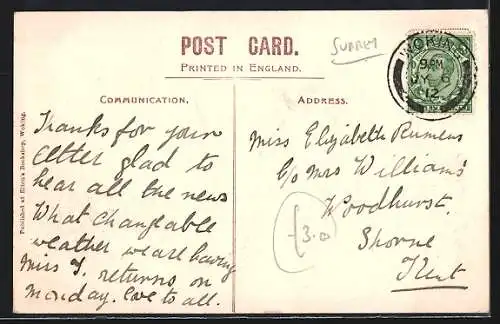 POST CARD.
PRINTED IN ENGLAND.
SURREY
WOKING
9 PM
JY 6
12
COMMUNICATION.
ADDRESS.
Thanks for your
letter glad to
hear all the news
What changeable
weather we are having
Miss Y. returns on
Monday. love to all.
Miss Elizabeth Rumens
C/o Mrs Williams
Woodhurst.
Shorne
Kent
3.0
Published at Elton's Bookshop, Woking.